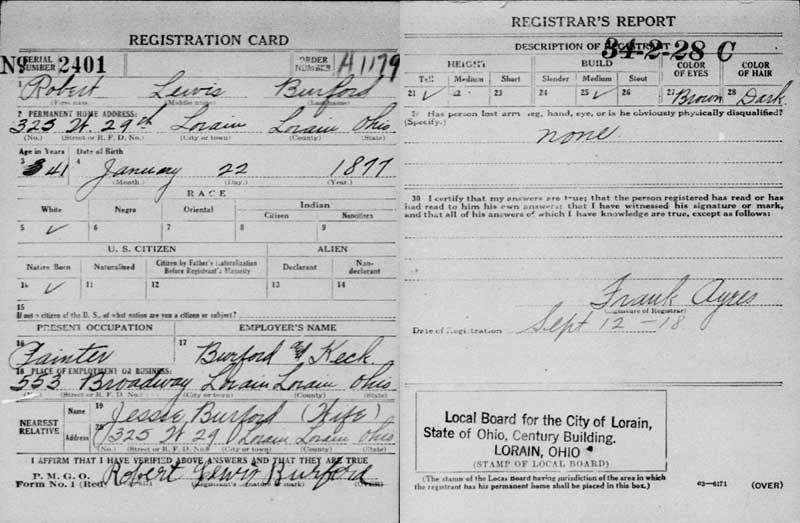 REGISTRATION CARD
SERIAL NUMBER 2401 ORDER NUMBER A1179
1 Robert Lewis Burford
(First name) (Middle name) (Last name)
2 PERMANENT HOME ADDRESS:
325 W. 29th Lorain Lorain Ohio
(No.) (Street or R. F. D. No.) (City or town) (County) (State)
Age in Years Date of Birth
3 41 4 January 22 1877
(Month.) (Day.) (Year.)
RACE
White Negro Oriental Indian
Citizen Noncitizen
5 ✓ 6 7 8 9
U. S. CITIZEN ALIEN
Native Born Naturalized Citizen by Father's Naturalization Before Registrant's Majority Declarant Non-declarant
10 ✓ 11 12 13 14
15
If not a citizen of the U. S. of what nation are you a citizen or subject?
PRESENT OCCUPATION EMPLOYER'S NAME
16 Painter 17 Burford & Keck
18 PLACE OF EMPLOYMENT OR BUSINESS:
553 Broadway Lorain Lorain Ohio
(No.) (Street or R. F. D. No.) (City or town) (County) (State)
NEAREST RELATIVE
Name 19 Jessie Burford (Wife)
Address 20 325 W 29 Lorain Lorain Ohio
(No.) (Street or R. F. D. No.) (City or town) (County) (State)
I AFFIRM THAT I HAVE VERIFIED ABOVE ANSWERS AND THAT THEY ARE TRUE
P. M. G. O.
Form No. 1 (Red) Robert Lewis Burford
(Registrant's signature or mark) (OVER)
REGISTRAR'S REPORT
34-2-28 C
DESCRIPTION OF REGISTRANT
HEIGHT BUILD COLOR OF EYES COLOR OF HAIR
Tall Medium Short Slender Medium Stout
21 ✓ 22 23 24 25 ✓ 26 27 Brown 28 Dark
29 Has person lost arm, leg, hand, eye, or is he obviously physically disqualified?
(Specify.)
none
30 I certify that my answers are true; that the person registered has read or has
had read to him his own answers; that I have witnessed his signature or mark,
and that all of his answers of which I have knowledge are true, except as follows:
Frank Ayres
(Signature of Registrar)
Date of Registration Sept 12-18
Local Board for the City of Lorain,
State of Ohio, Century Building.
LORAIN, OHIO
(STAMP OF LOCAL BOARD)
(The stamp of the Local Board having jurisdiction of the area in which
the registrant has his permanent home shall be placed in this box.)
03—6171 (OVER)